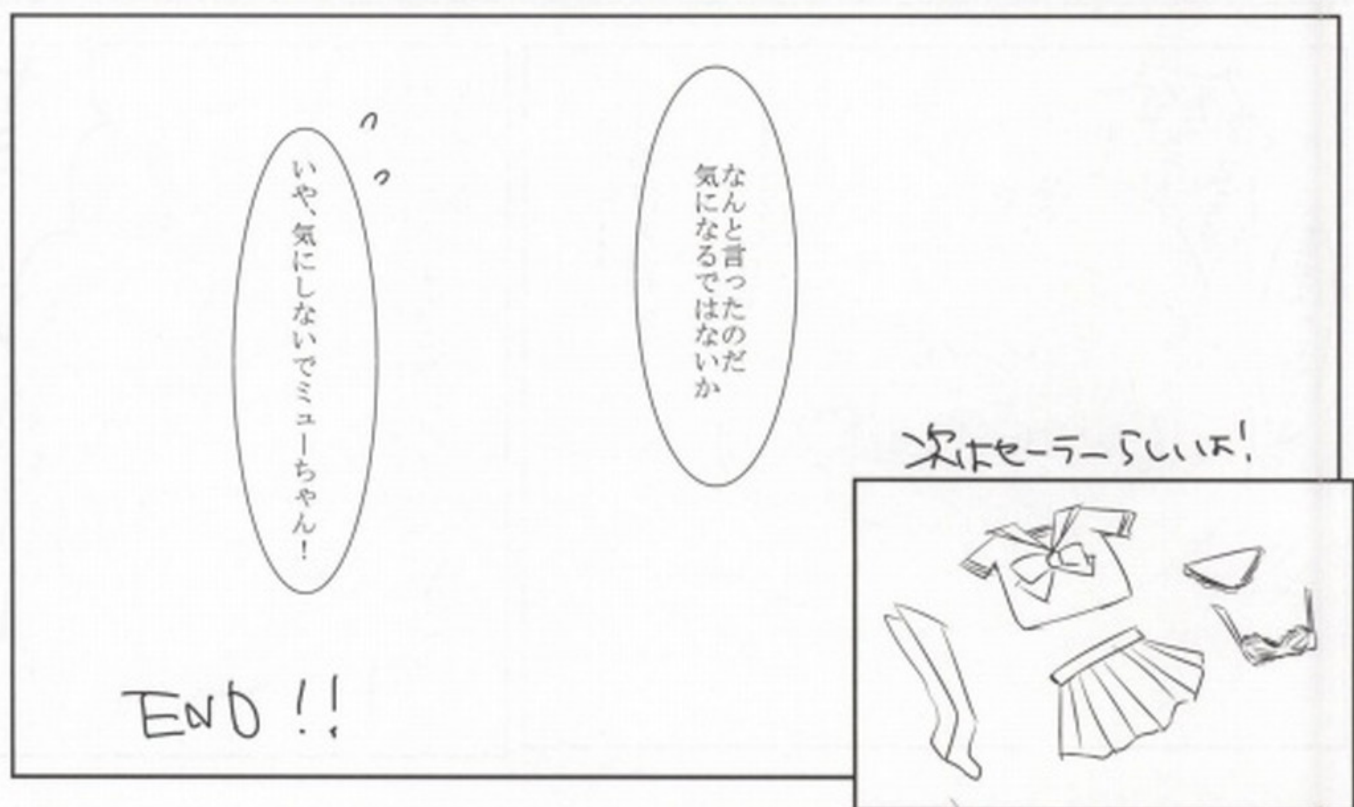 なんと言ったのだ
気になるではないか
いや、気にしないでミューちゃん！
次はセーラーらしいよ!
END !!